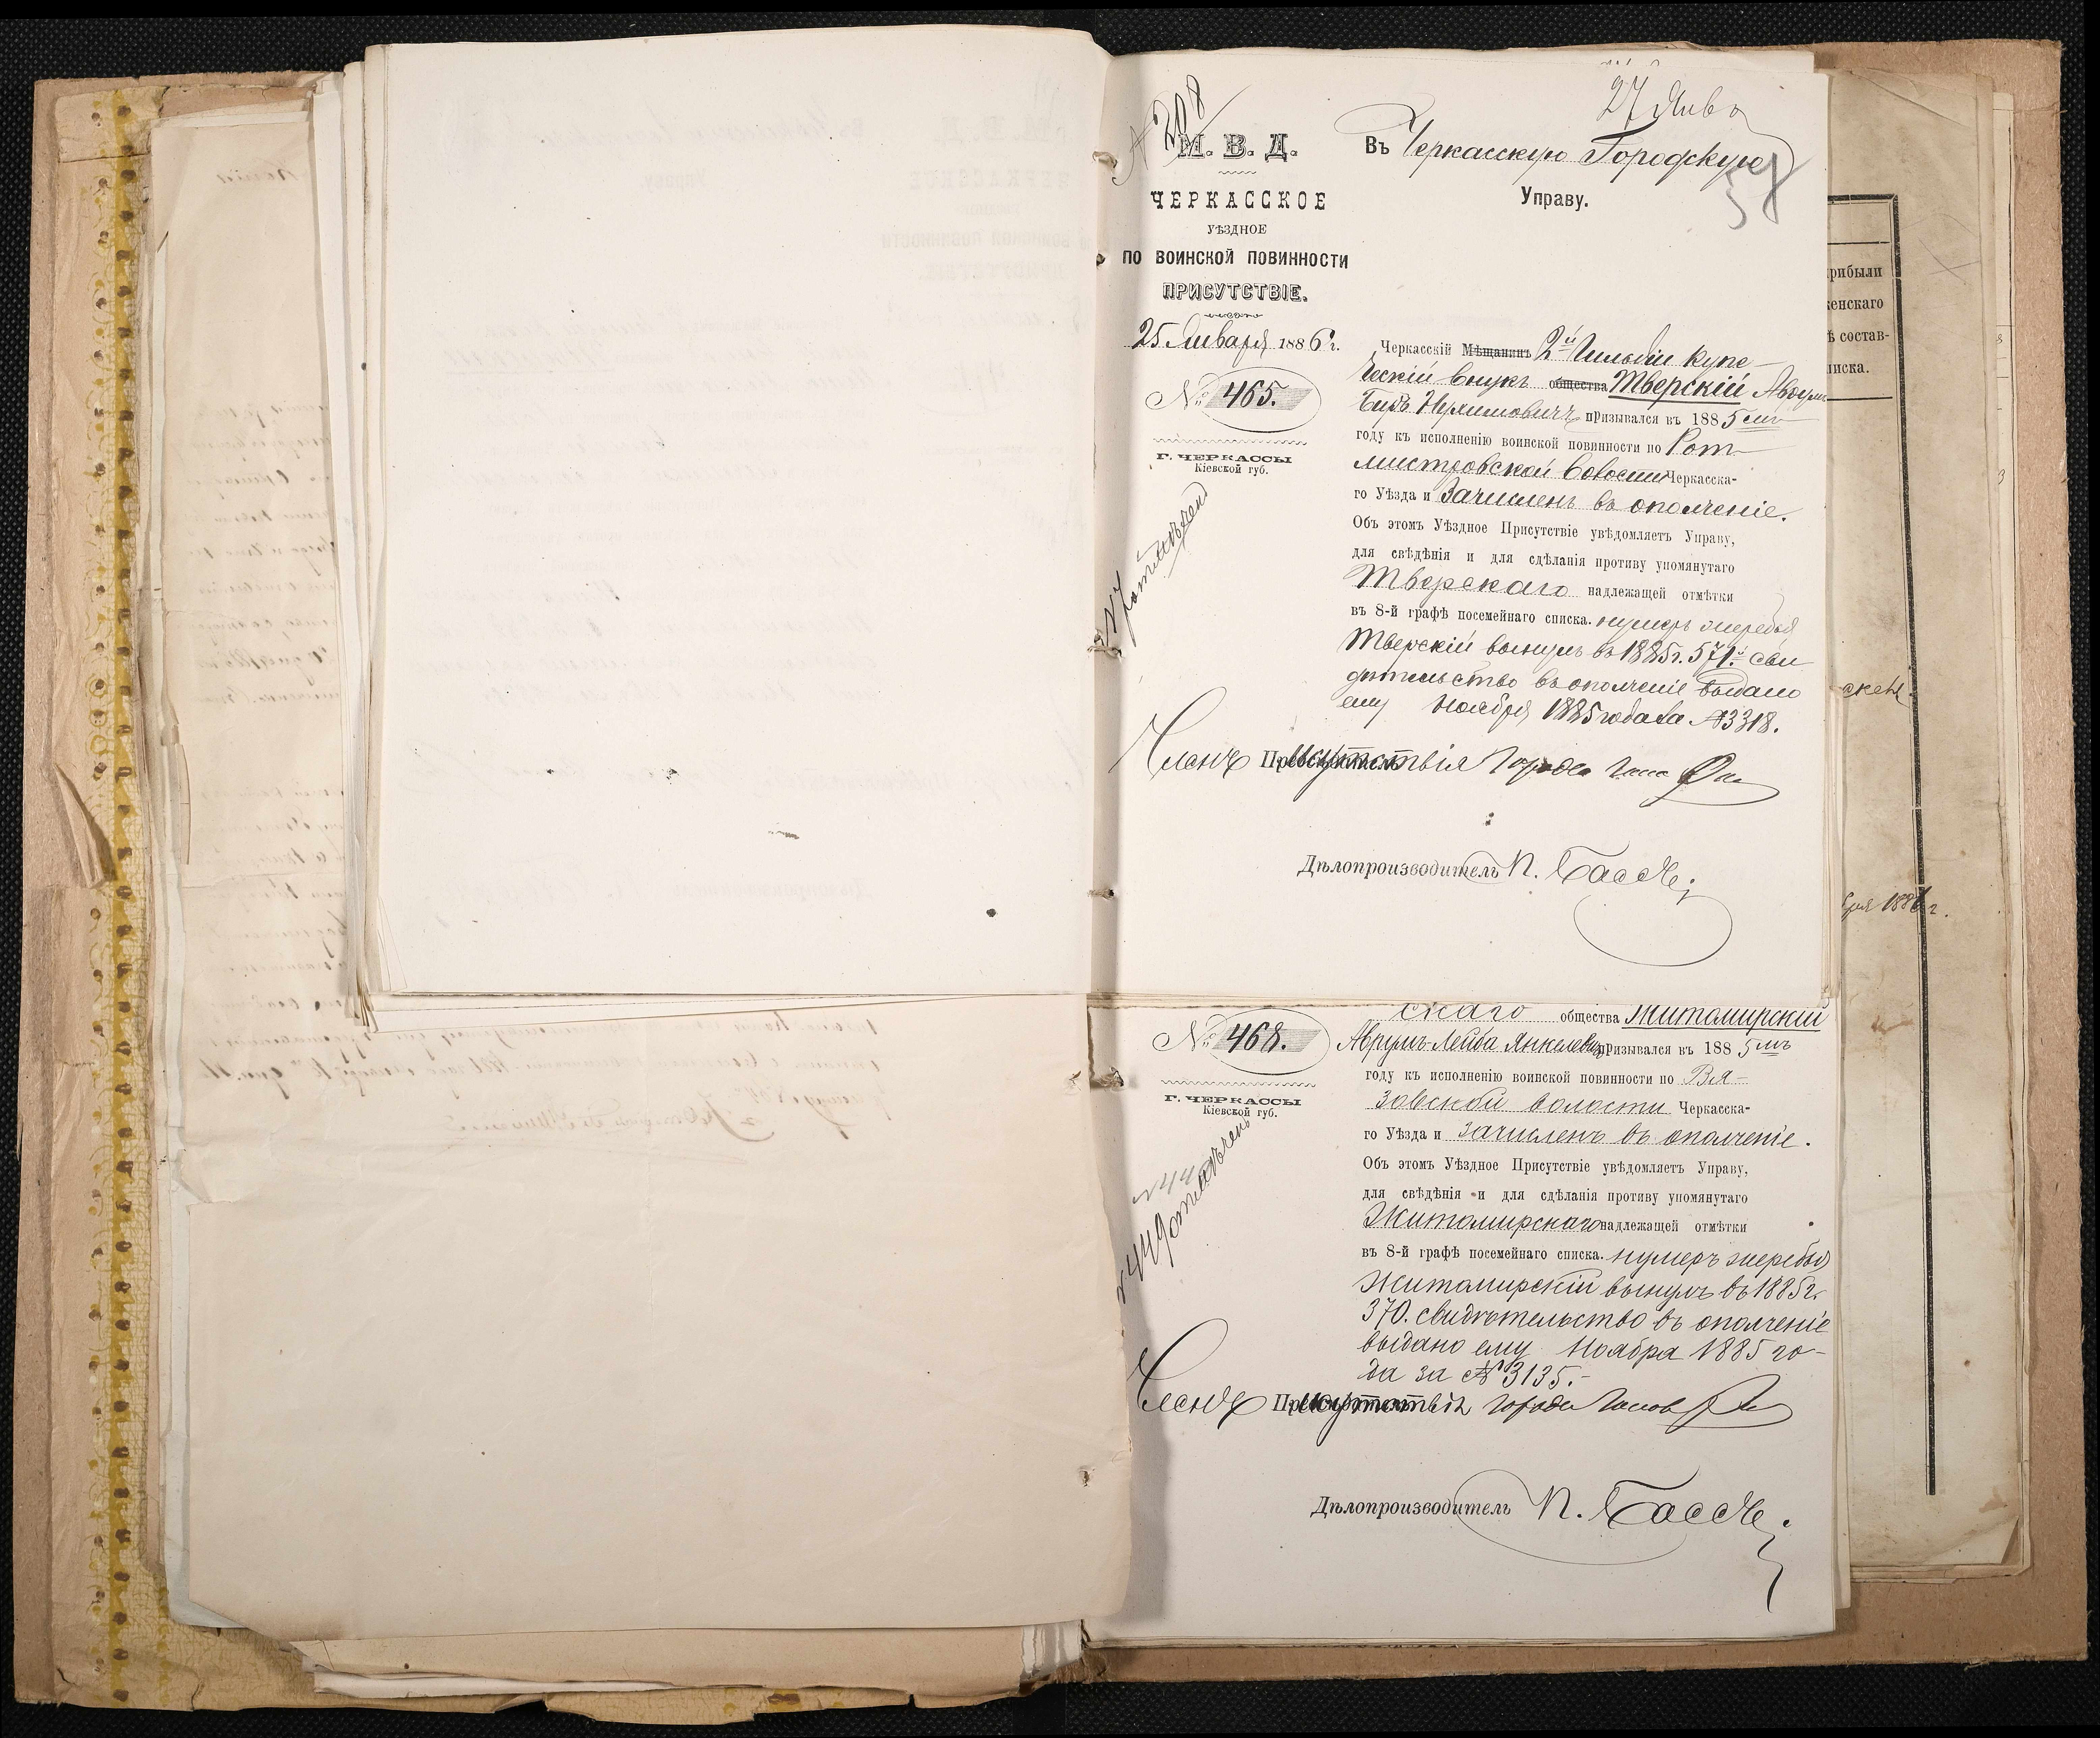 № 208
27 Янв
М. В. Д.
ЧЕРКАССКОЕ
УѢЗДНОЕ
ПО ВОИНСКОЙ ПОВИННОСТИ
ПРИСУТСТВІЕ.
25 Января 1886 г.
№ 465.
Г. ЧЕРКАССЫ
Кіевской губ.
Въ Черкасскую Городскую
Управу.
Черкасскій Мѣщанинъ 2й Гильдіи купе-
ческій внукъ общества Тверскій Аврумъ
призывался въ 1885 мъ
году къ исполненію воинской повинности по Рот-
мистровской волости Черкасска-
го Уѣзда и Зачисленъ въ ополченіе.
Объ этомъ Уѣздное Присутствіе увѣдомляетъ Управу,
для свѣдѣнія и для сдѣланія противу упомянутаго
Тверскаго надлежащей отмѣтки
въ 8-й графѣ посемейнаго списка. нумеръ жеребья
Тверскій вынулъ въ 1885 г. 571. й сви
дѣтельство въ ополченіе выдано
ему Ноября 1885 года за № 3318.
Членъ Присутствія Городск
Дѣлопроизводитель П.
скаго общества Житомирскій
№ 468.
Аврумъ-Лейба Янкелевъ призывался въ 1885 мъ
году къ исполненію воинской повинности по Вя-
Г. ЧЕРКАССЫ
Кіевской губ.
зовской волости Черкасска-
го Уѣзда и зачисленъ въ ополченіе.
Объ этомъ Уѣздное Присутствіе увѣдомляетъ Управу,
для свѣдѣнія и для сдѣланія противу упомянутаго
Житомирскаго надлежащей отмѣтки
въ 8-й графѣ посемейнаго списка. нумеръ жеребья
Житомирскій вынулъ въ 1885 г.
370. свидѣтельство въ ополченіе
выдано ему Ноября 1885 го-
да за № 3135.-
Членъ Присутствія
Дѣлопроизводитель П.
рибыли
енскаго
состав-
иска.